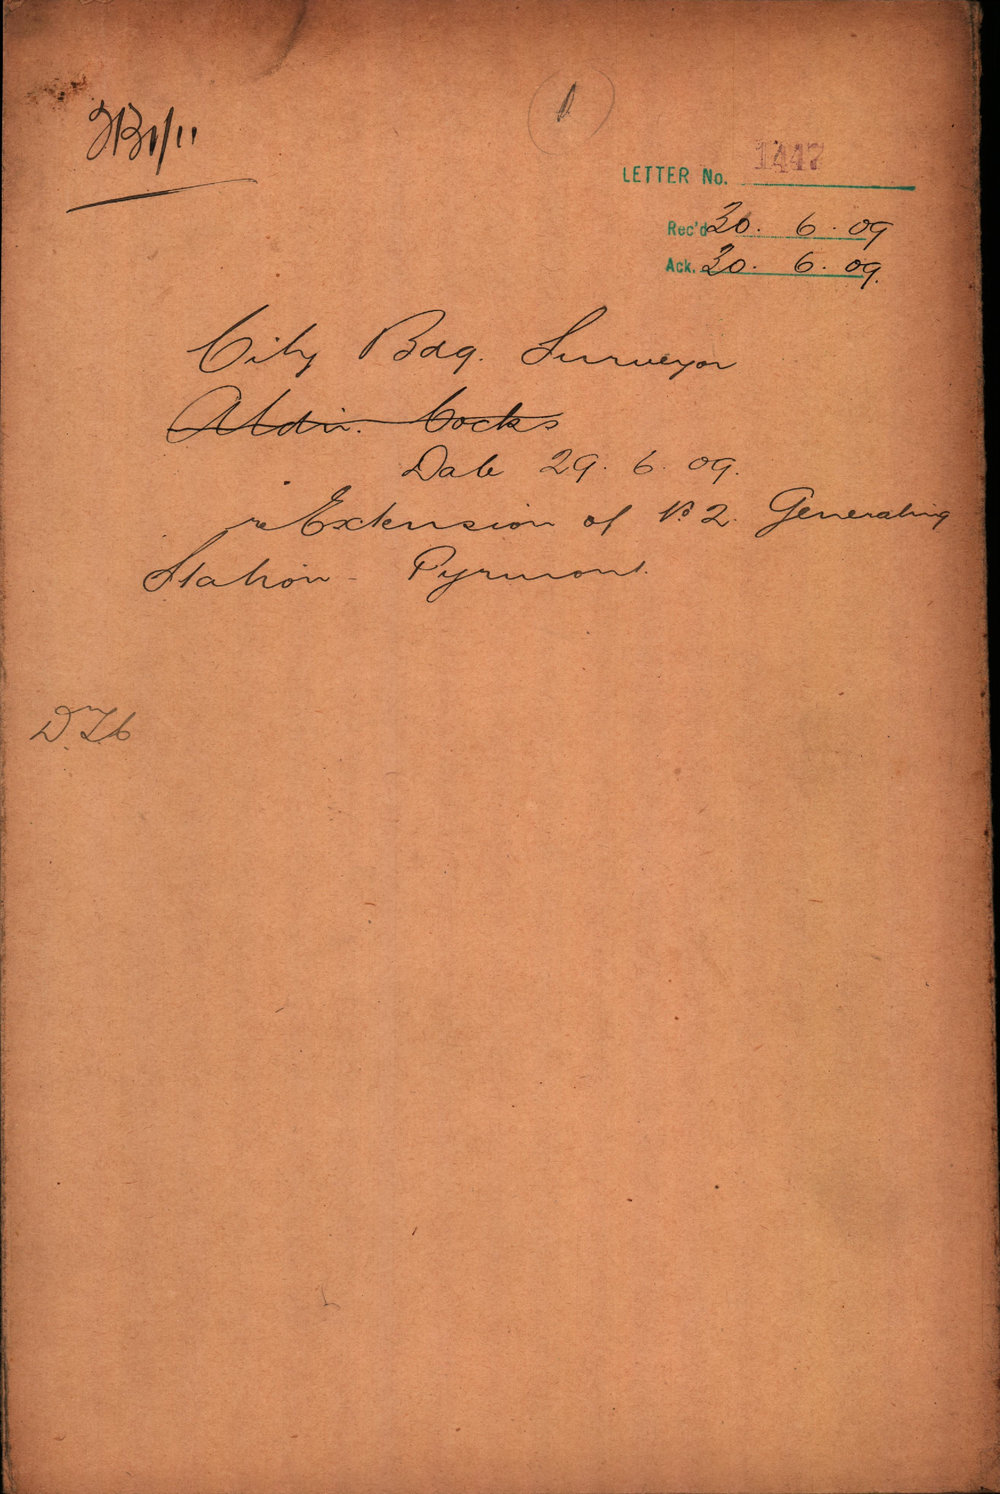 LETTER No. 1447
Rec'd 30. 6. 09
Ack. 30. 6. 09.
City Bdg. Surveyor
Aldn. Cocks
Date 29. 6. 09.
re Extension of No 2. Generating
Station - Pyrmont.